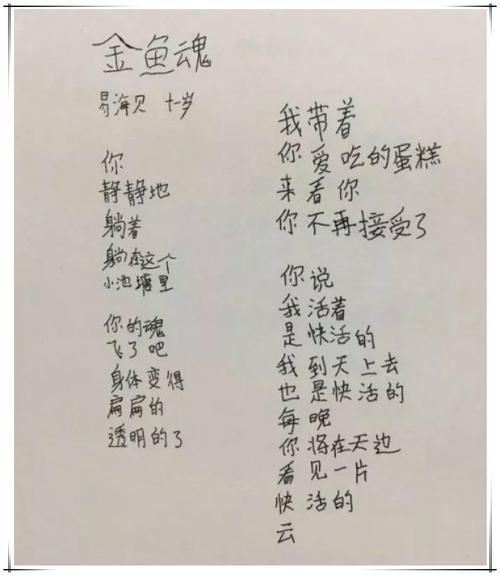 金鱼魂
易海贝 十一岁
你
静静地
躺着
躺在这个
小池塘里
你的魂
飞了吧
身体变得
扁扁的
透明的了
我带着
你爱吃的蛋糕
来看你
你不再接受了
你说
我活着
是快活的
我到天上去
也是快活的
每晚
你将在天边
看见一片
快活的
云